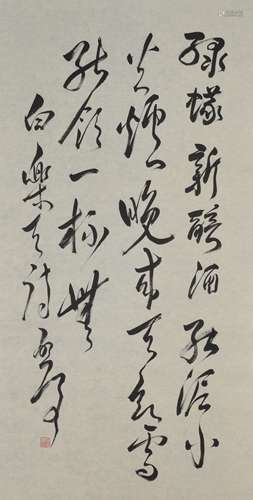 綠蟻新醅酒紅泥小
火爐晚來天欲雪
能飲一杯無
白樂天詩